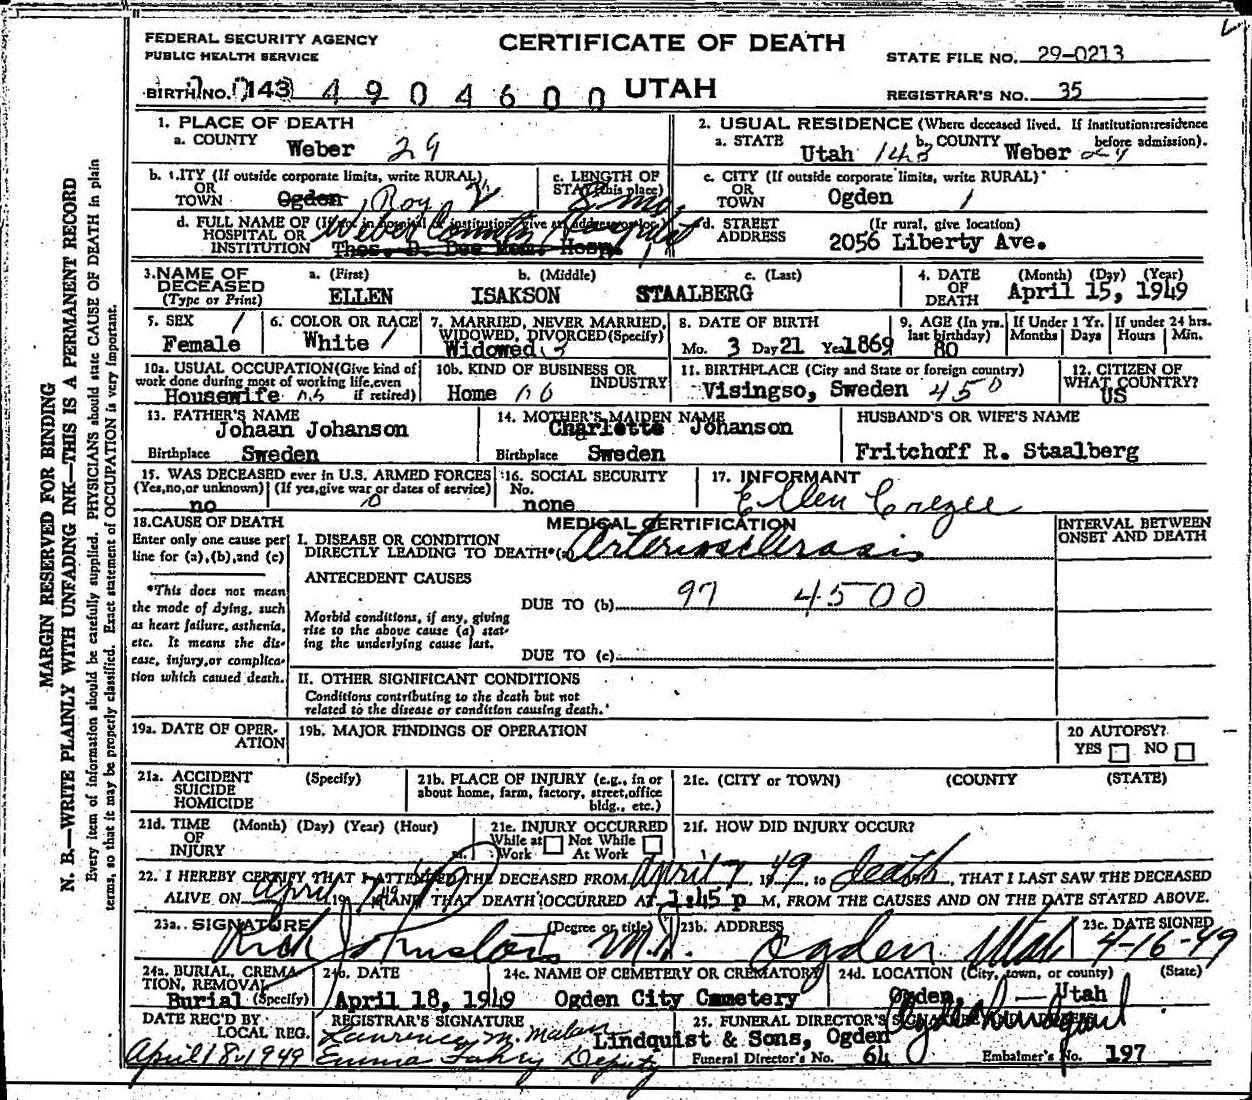 FEDERAL SECURITY AGENCY
PUBLIC HEALTH SERVICE
CERTIFICATE OF DEATH
STATE FILE NO. 29-0213
BIRTH NO. 143 4904600
UTAH
REGISTRAR'S NO. 35
1. PLACE OF DEATH
a. COUNTY Weber 29
2. USUAL RESIDENCE (Where deceased lived. If institution:residence before admission).
a. STATE Utah 143 b. COUNTY Weber
b. CITY (If outside corporate limits, write RURAL)
OR
TOWN Ogden Roy
c. LENGTH OF
STAY (this place)
8 mo.
c. CITY (If outside corporate limits, write RURAL)
OR
TOWN Ogden 1
d. FULL NAME OF (If not in hospital or institution, give street address or location)
HOSPITAL OR
INSTITUTION Thos. D. Dee Mem. Hosp. Weber County Hospital
d. STREET
ADDRESS
(If rural, give location)
2056 Liberty Ave.
3. NAME OF
DECEASED
(Type or Print)
a. (First) b. (Middle) c. (Last)
ELLEN ISAKSON STAALBERG
4. DATE
OF
DEATH
(Month) (Day) (Year)
April 15, 1949
5. SEX 1
Female
6. COLOR OR RACE
White 1
7. MARRIED, NEVER MARRIED,
WIDOWED, DIVORCED (Specify)
Widowed 3
8. DATE OF BIRTH
Mo. 3 Day 21 Year 1869
9. AGE (In yrs.
last birthday)
80
If Under 1 Yr.
Months Days
If under 24 hrs.
Hours Min.
10a. USUAL OCCUPATION (Give kind of
work done during most of working life, even
if retired)
Housewife
10b. KIND OF BUSINESS OR
INDUSTRY
Home
11. BIRTHPLACE (City and State or foreign country)
Visingso, Sweden 450
12. CITIZEN OF
WHAT COUNTRY?
US
13. FATHER'S NAME
Johaan Johanson
Birthplace Sweden
14. MOTHER'S MAIDEN NAME
Charlotte Johanson
Birthplace Sweden
HUSBAND'S OR WIFE'S NAME
Fritchoff R. Staalberg
15. WAS DECEASED ever in U.S. ARMED FORCES
(Yes, no, or unknown) (If yes, give war or dates of service)
no 0
16. SOCIAL SECURITY
No.
none
17. INFORMANT
Ellen Crezee
18. CAUSE OF DEATH
Enter only one cause per
line for (a), (b), and (c)
MEDICAL CERTIFICATION
I. DISEASE OR CONDITION
DIRECTLY LEADING TO DEATH*(a) Arteriosclerosis
INTERVAL BETWEEN
ONSET AND DEATH
*This does not mean
the mode of dying, such
as heart failure, asthenia,
etc. It means the dis-
ease, injury, or complica-
tion which caused death.
ANTECEDENT CAUSES
DUE TO (b) 97 4500
Morbid conditions, if any, giving
rise to the above cause (a) stat-
ing the underlying cause last.
DUE TO (c)
II. OTHER SIGNIFICANT CONDITIONS
Conditions contributing to the death but not
related to the disease or condition causing death.
19a. DATE OF OPER-
ATION
19b. MAJOR FINDINGS OF OPERATION
20 AUTOPSY?
YES NO
21a. ACCIDENT
SUICIDE
HOMICIDE
(Specify)
21b. PLACE OF INJURY (e.g., in or
about home, farm, factory, street, office
bldg., etc.)
21c. (CITY or TOWN) (COUNTY) (STATE)
21d. TIME
OF
INJURY
(Month) (Day) (Year) (Hour)
m.
21e. INJURY OCCURRED
While at Work Not While At Work
21f. HOW DID INJURY OCCUR?
22. I HEREBY CERTIFY THAT I ATTENDED THE DECEASED FROM April 7, 1949, to death, THAT I LAST SAW THE DECEASED
ALIVE ON April 19 AND THAT DEATH OCCURRED AT 1:45 p M, FROM THE CAUSES AND ON THE DATE STATED ABOVE.
23a. SIGNATURE (Degree or title)
Rich Johnston M.D.
23b. ADDRESS
Ogden Utah
23c. DATE SIGNED
4-16-49
24a. BURIAL, CREMA-
TION, REMOVAL
Burial (Specify)
24b. DATE
April 18, 1949
24c. NAME OF CEMETERY OR CREMATORY
Ogden City Cemetery
24d. LOCATION (City, town, or county) (State)
Ogden, — Utah
DATE REC'D BY
LOCAL REG.
April 18 1949
REGISTRAR'S SIGNATURE
Lawrence M. Malan
Emma Fahey Deputy
25. FUNERAL DIRECTOR'S SIGNATURE AND ADDRESS
Lindquist & Sons, Ogden
Funeral Director's No. 64 Embalmer's No. 197
MARGIN RESERVED FOR BINDING
N. B.—WRITE PLAINLY WITH UNFADING INK—THIS IS A PERMANENT RECORD
Every item of information should be carefully supplied. PHYSICIANS should state CAUSE OF DEATH in plain
terms, so that it may be properly classified. Exact statement of OCCUPATION is very important.